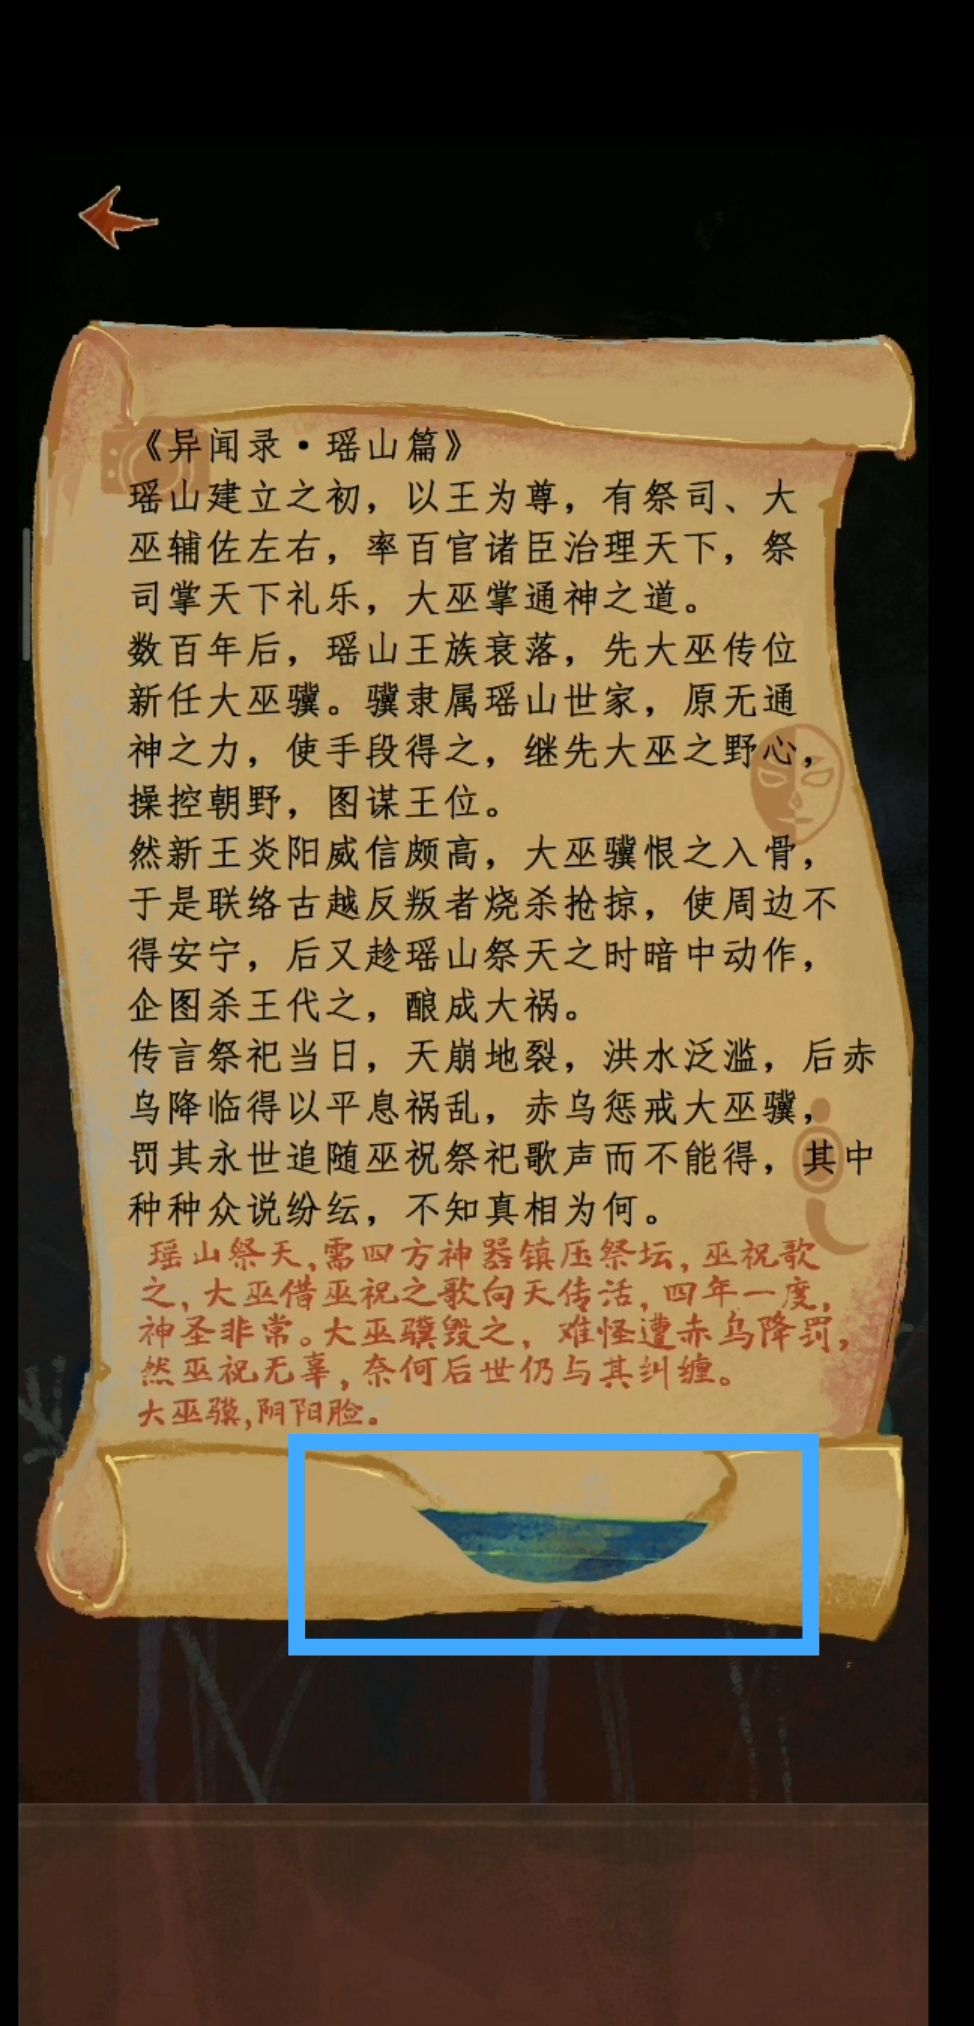 《异闻录·瑶山篇》
瑶山建立之初，以王为尊，有祭司、大
巫辅佐左右，率百官诸臣治理天下，祭
司掌天下礼乐，大巫掌通神之道。
数百年后，瑶山王族衰落，先大巫传位
新任大巫骥。骥隶属瑶山世家，原无通
神之力，使手段得之，继先大巫之野心，
操控朝野，图谋王位。
然新王炎阳威信颇高，大巫骥恨之入骨，
于是联络古越反叛者烧杀抢掠，使周边不
得安宁，后又趁瑶山祭天之时暗中动作，
企图杀王代之，酿成大祸。
传言祭祀当日，天崩地裂，洪水泛滥，后赤
乌降临得以平息祸乱，赤乌惩戒大巫骥，
罚其永世追随巫祝祭祀歌声而不能得，其中
种种众说纷纭，不知真相为何。
瑶山祭天，需四方神器镇压祭坛，巫祝歌
之，大巫借巫祝之歌向天传话，四年一度，
神圣非常。大巫骥毁之，难怪遭赤乌降罚，
然巫祝无辜，奈何后世仍与其纠缠。
大巫骥，阴阳脸。